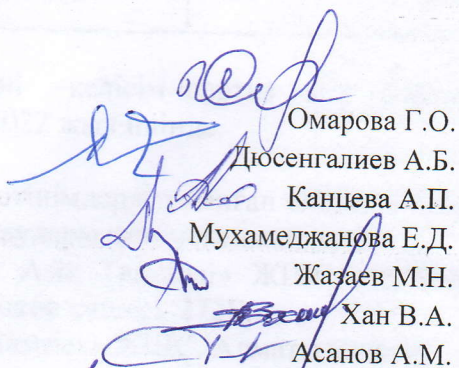 Омарова Г.О.
Дюсенгалиев А.Б.
Канцева А.П.
Мухамеджанова Е.Д.
Жазаев М.Н.
Хан В.А.
Асанов А.М.